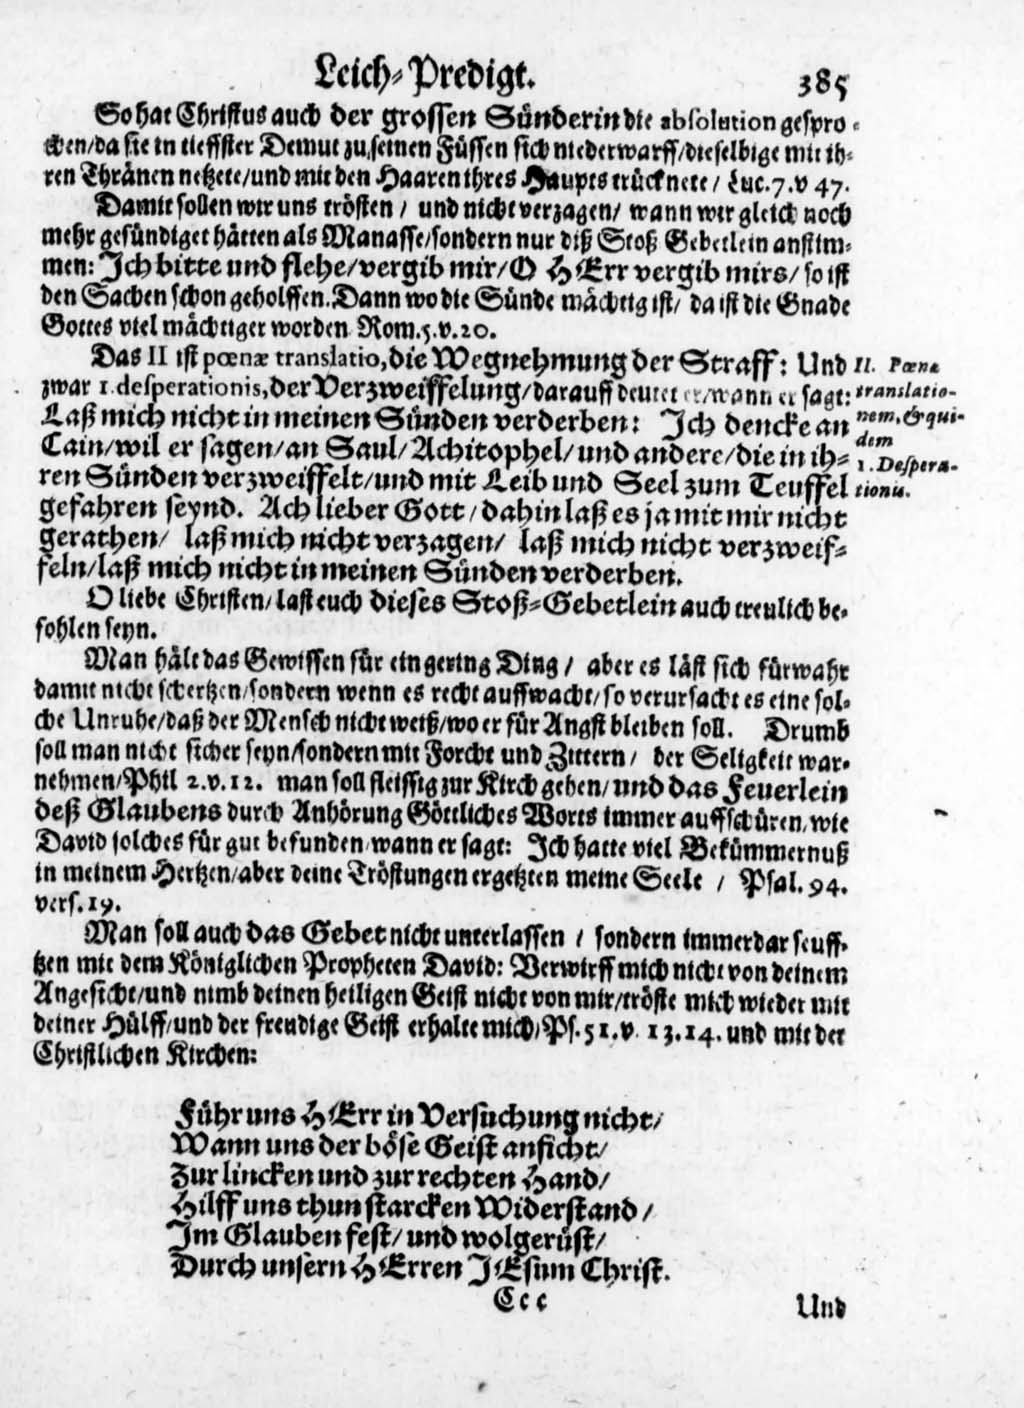 Leich-Predigt. 385
So hat Christus auch der grossen Sünderin die absolution gespro-
chen/da sie in tieffster Demut zu seinen Füssen sich niederwarff/dieselbige mit ih-
ren Thränen netzete/und mit den Haaren ihres Haupts trücknete/ Luc.7.v 47.
Damit sollen wir uns trösten/ und nicht verzagen/ wann wir gleich noch
mehr gesündiget hätten als Manasse/sondern nur diß Stoß Gebetlein anstim-
men: Ich bitte und flehe/vergib mir/O HErr vergib mirs/so ist
den Sachen schon geholffen. Dann wo die Sünde mächtig ist/ da ist die Gnade
Gottes viel mächtiger worden Rom.5.v.20.
Das II ist pœnæ translatio, die Wegnehmung der Straff: Und
zwar 1. desperationis, der Verzweiffelung/darauff deutet er/wann er sagt:
Laß mich nicht in meinen Sünden verderben: Ich dencke an
Cain/wil er sagen/an Saul/Achitophel/und andere/die in ih-
ren Sünden verzweiffelt/und mit Leib und Seel zum Teuffel
gefahren seynd. Ach lieber Gott/dahin laß es ja mit mir nicht
gerathen/ laß mich nicht verzagen/ laß mich nicht verzweif-
feln/laß mich nicht in meinen Sünden verderben.
II. Pœnæ
translatio-
nem, & qui-
dem
1. Despera-
tionis.
O liebe Christen/last euch dieses Stoß-Gebetlein auch treulich be-
fohlen seyn.
Man hält das Gewissen für ein gering Ding/ aber es läst sich fürwahr
damit nicht schertzen/sondern wenn es recht auffwacht/so verursacht es eine sol-
che Unruhe/daß der Mensch nicht weiß/wo er für Angst bleiben soll. Drumb
soll man nicht sicher seyn/sondern mit Forcht und Zittern/ der Seligkeit war-
nehmen/Phil 2.v.12. man soll fleissig zur Kirch gehen/und das Feuerlein
deß Glaubens durch Anhörung Göttliches Worts immer auffschüren/wie
David solches für gut befunden/wann er sagt: Ich hatte viel Bekümmernuß
in meinem Hertzen/aber deine Tröstungen ergetzten meine Seele/ Psal.94.
vers.19.
Man soll auch das Gebet nicht unterlassen/ sondern immerdar seuff-
tzen mit dem Königlichen Propheten David: Verwirff mich nicht von deinem
Angesicht/und nimb deinen heiligen Geist nicht von mir/tröste mich wieder mit
deiner Hülff/und der freudige Geist erhalte mich/Ps.51.v.13.14. und mit der
Christlichen Kirchen:
Führ uns HErr in Versuchung nicht/
Wann uns der böse Geist anficht/
Zur lincken und zur rechten Hand/
Hilff uns thun starcken Widerstand/
Im Glauben fest/und wolgerüst/
Durch unsern HErren JEsum Christ.
Ccc Und